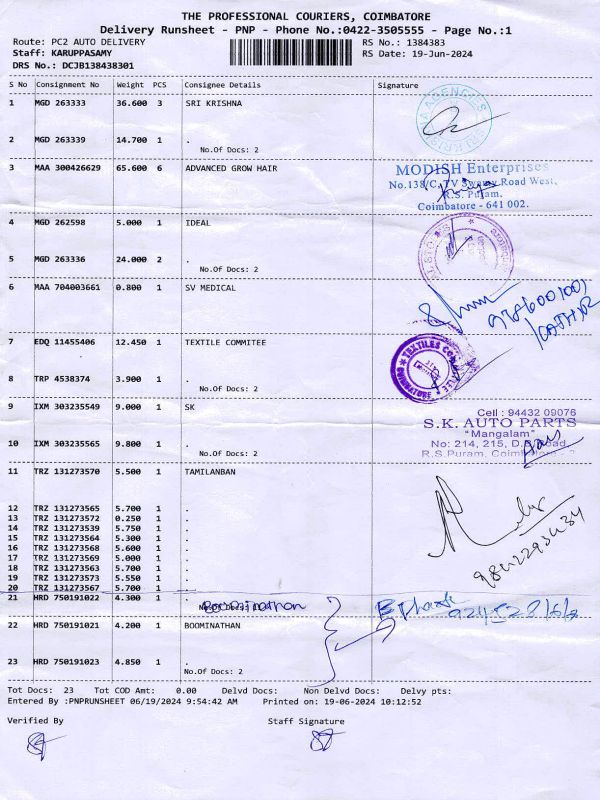 THE PROFESSIONAL COURIERS, COIMBATORE
Delivery Runsheet - PNP - Phone No.:0422-3505555 - Page No.:1
Route: PC2 AUTO DELIVERY RS No.: 1384383
Staff: KARUPPASAMY RS Date: 19-Jun-2024
DRS No.: DCJB138438301
S No Consignment No Weight PCS Consignee Details Signature
1 MGD 263333 36.600 3 SRI KRISHNA
SRI KRISHNA AGENCIES
2 MGD 263339 14.700 1 .
No.Of Docs: 2
3 MAA 300426629 65.600 6 ADVANCED GROW HAIR
MODISH Enterprises
No.138/C, TV Swamy Road West,
R.S. Puram,
Coimbatore - 641 002.
4 MGD 262598 5.000 1 IDEAL
5 MGD 263336 24.000 2 .
No.Of Docs: 2
6 MAA 704003661 0.800 1 SV MEDICAL
7 EDQ 11455406 12.450 1 TEXTILE COMMITEE
TEXTILES
8 TRP 4538374 3.900 1 .
No.Of Docs: 2
9 IXM 303235549 9.000 1 SK
Cell : 94432 09076
S.K. AUTO PARTS
"Mangalam"
No: 214, 215, D.B. Road,
R.S.Puram, Coimbatore - 2
10 IXM 303235565 9.800 1 .
No.Of Docs: 2
11 TRZ 131273570 5.500 1 TAMILANBAN
12 TRZ 131273565 5.700 1 .
13 TRZ 131273572 0.250 1 .
14 TRZ 131273539 5.750 1 .
15 TRZ 131273564 5.300 1 .
16 TRZ 131273568 5.600 1 .
17 TRZ 131273569 5.000 1 .
18 TRZ 131273563 5.700 1 .
19 TRZ 131273573 5.550 1 .
20 TRZ 131273567 5.700 1 .
21 HRD 750191022 4.300 1 .
Boominathan
22 HRD 750191021 4.200 1 BOOMINATHAN
23 HRD 750191023 4.850 1 .
No.Of Docs: 2
Tot Docs: 23 Tot COD Amt: 0.00 Delvd Docs: Non Delvd Docs: Delvy pts:
Entered By :PNPRUNSHEET 06/19/2024 9:54:42 AM Printed on: 19-06-2024 10:12:52
Verified By Staff Signature